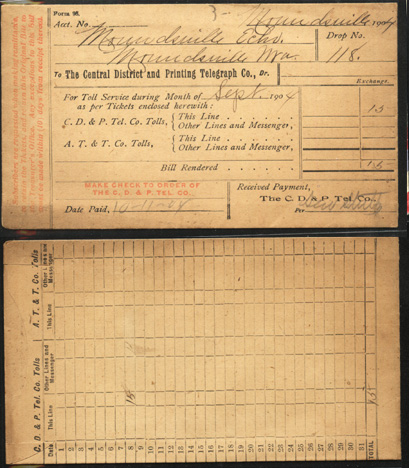 Form 96.
3- Moundsville 1904
Acct. No. Moundsville Echo. Drop No.
Moundsville Wva. 118.
To The Central District and Printing Telegraph Co., Dr.
Exchange.
For Toll Service during Month of Sept. 1904
as per Tickets enclosed herewith:
C. D. & P. Tel. Co. Tolls, { This Line 15
Other Lines and Messenger,
A. T. & T. Co. Tolls, { This Line
Other Lines and Messenger,
Bill Rendered 15
MAKE CHECK TO ORDER OF
THE C. D. & P. TEL. CO.
Received Payment,
The C. D. & P. Tel. Co.
Date Paid, 10-11-04 Per
C. D. & P. Tel. Co. Tolls A. T. & T. Co. Tolls
Date This Line Other Lines and Messenger This Line Other Lines and Messenger
1
2
3
4
5
6
7
8 15
9
10
11
12
13
14
15
16
17
18
19
20
21
22
23
24
25
26
27
28
29
30
31
TOTAL 15